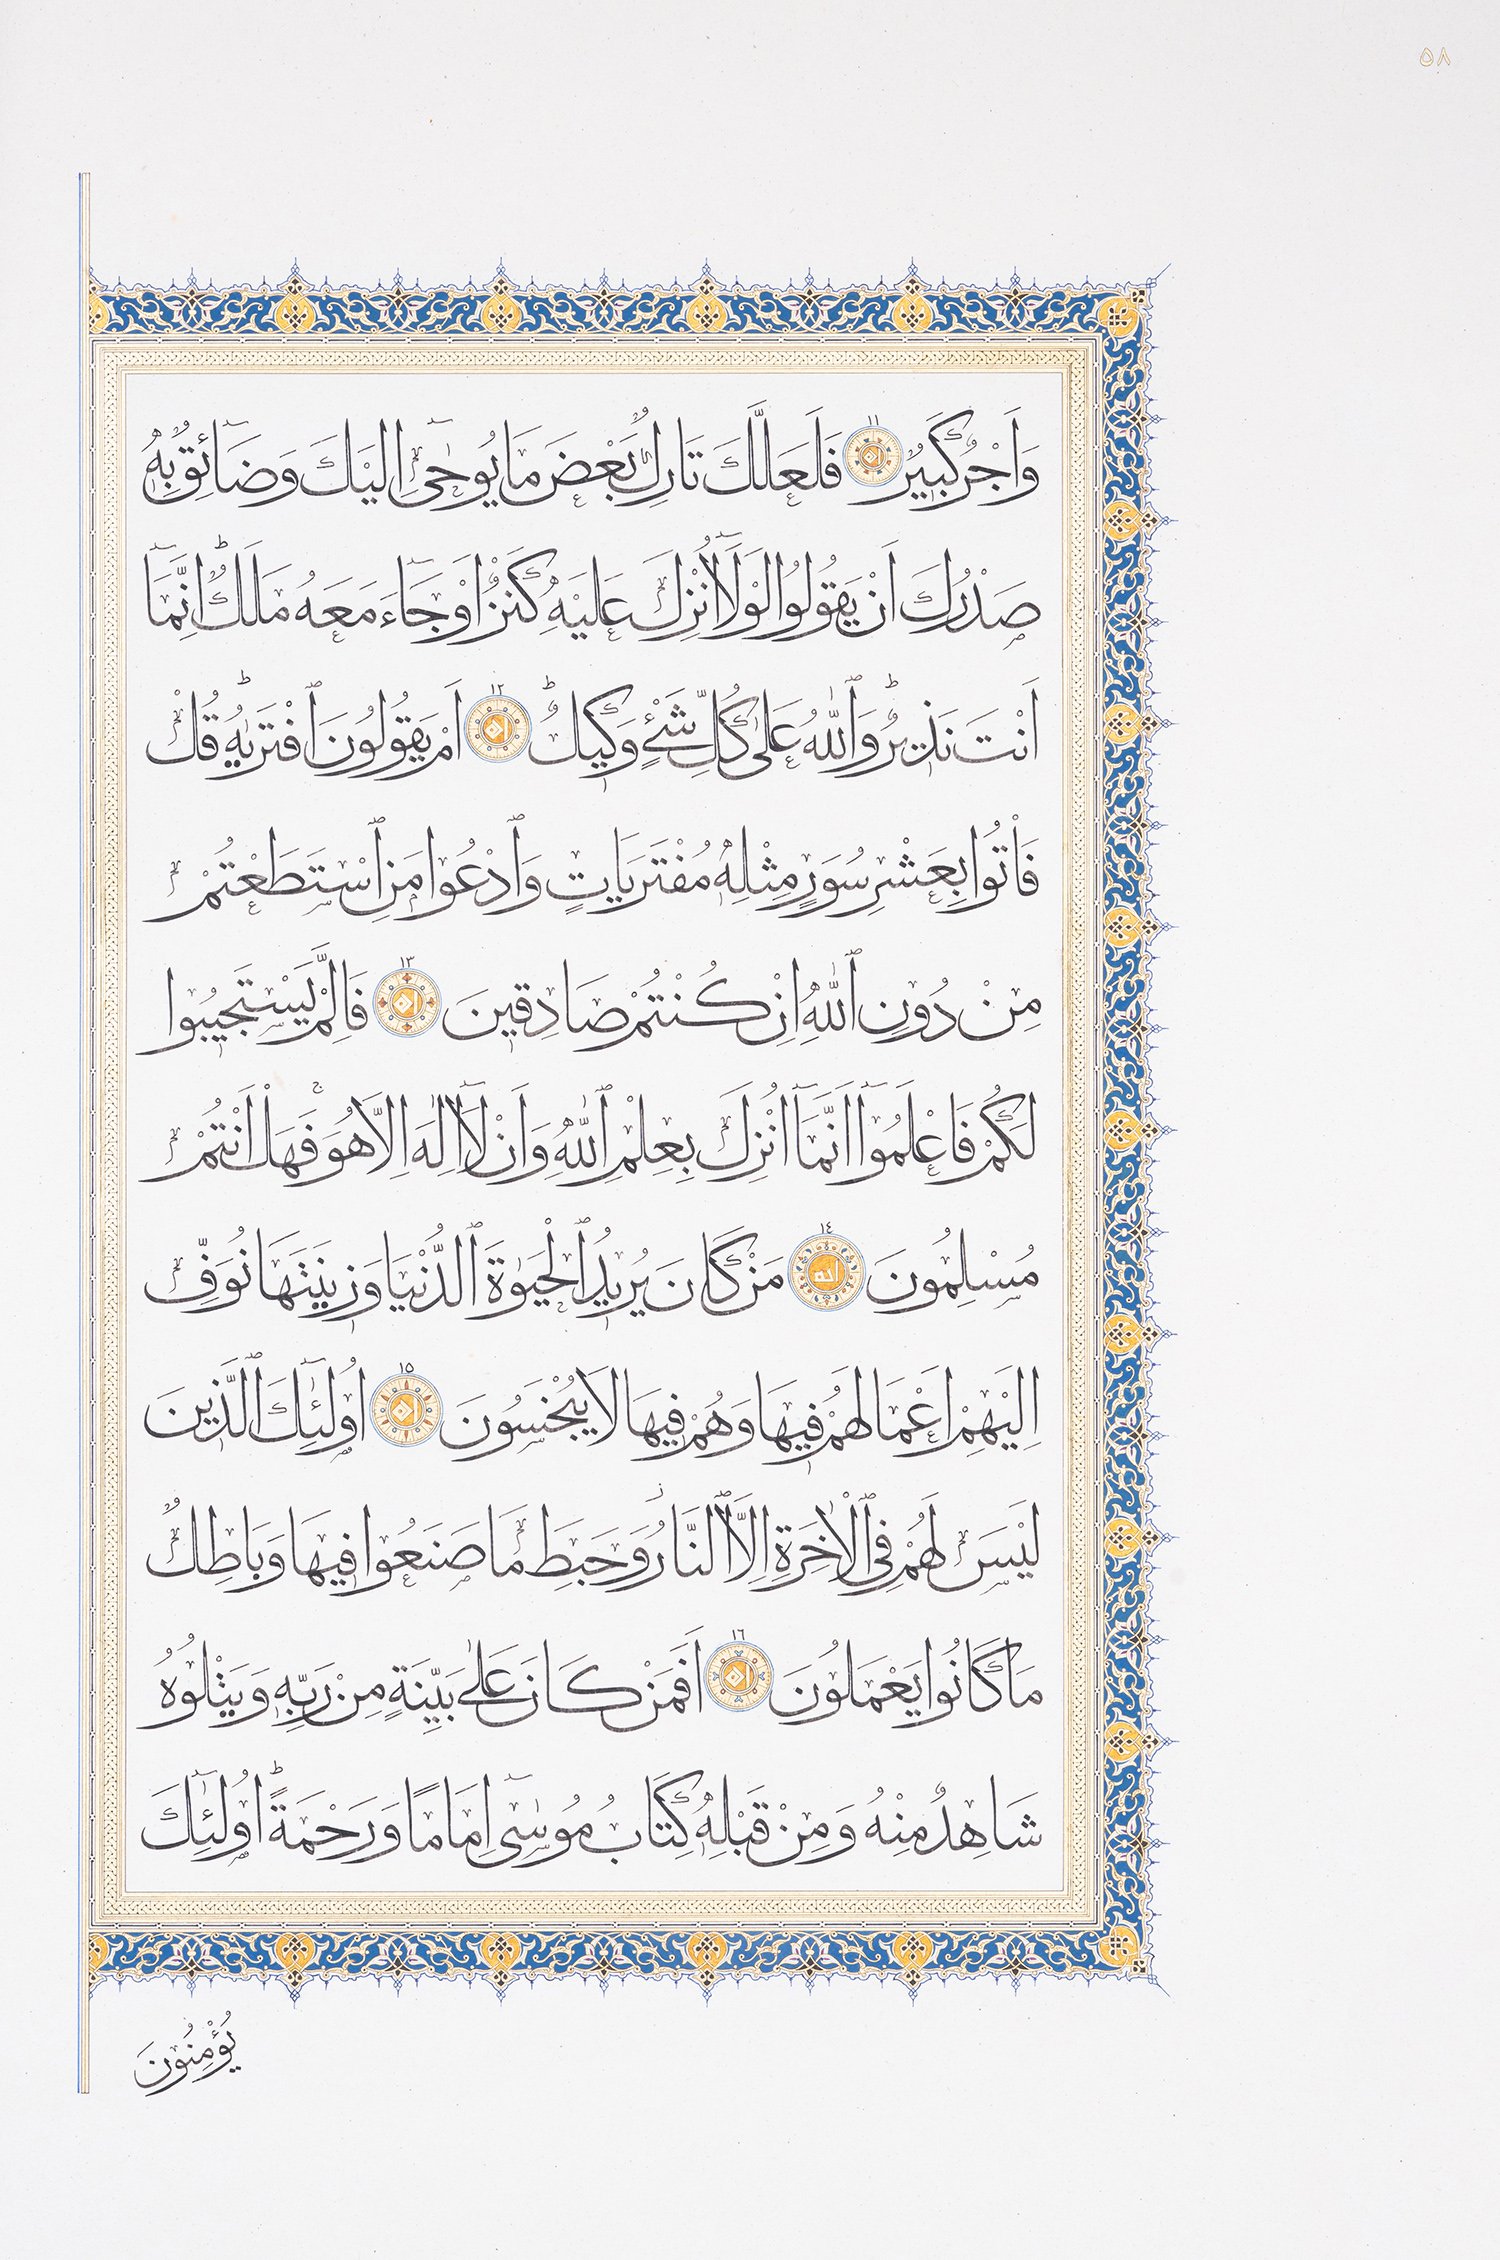 ٥٨
وَاَجْرٌ كَبٖيرٌ ١١ فَلَعَلَّكَ تَارِكٌ بَعْضَ مَا يُوحٰٓى اِلَيْكَ وَضَٓائِقٌ بِهٖ
صَدْرُكَ اَنْ يَقُولُوا لَوْلَٓا اُنْزِلَ عَلَيْهِ كَنْزٌ اَوْ جَٓاءَ مَعَهُ مَلَكٌؕ اِنَّمَٓا
اَنْتَ نَذٖيرٌؕ وَاللّٰهُ عَلٰى كُلِّ شَيْءٍ وَكٖيلٌؕ ١٢ اَمْ يَقُولُونَ افْتَرٰيهُؕ قُلْ
فَأْتُوا بِعَشْرِ سُوَرٍ مِثْلِهٖ مُفْتَرَيَاتٍ وَادْعُوا مَنِ اسْتَطَعْتُمْ
مِنْ دُونِ اللّٰهِ اِنْ كُنْتُمْ صَادِقٖينَ ١٣ فَاِلَّمْ يَسْتَجٖيبُوا
لَكُمْ فَاعْلَمُٓوا اَنَّمَٓا اُنْزِلَ بِعِلْمِ اللّٰهِ وَاَنْ لَٓا اِلٰهَ اِلَّا هُوَۚ فَهَلْ اَنْتُمْ
مُسْلِمُونَ ١٤ مَنْ كَانَ يُرٖيدُ الْحَيٰوةَ الدُّنْيَا وَزٖينَتَهَا نُوَفِّ
اِلَيْهِمْ اَعْمَالَهُمْ فٖيهَا وَهُمْ فٖيهَا لَا يُبْخَسُونَ ١٥ اُولٰٓئِكَ الَّذٖينَ
لَيْسَ لَهُمْ فِي الْاٰخِرَةِ اِلَّا النَّارُؗ وَحَبِطَ مَا صَنَعُوا فٖيهَا وَبَاطِلٌ
مَا كَانُوا يَعْمَلُونَ ١٦ اَفَمَنْ كَانَ عَلٰى بَيِّنَةٍ مِنْ رَبِّهٖ وَيَتْلُوهُ
شَاهِدٌ مِنْهُ وَمِنْ قَبْلِهٖ كِتَابُ مُوسٰٓى اِمَامًا وَرَحْمَةًؕ اُولٰٓئِكَ
يُؤْمِنُونَ